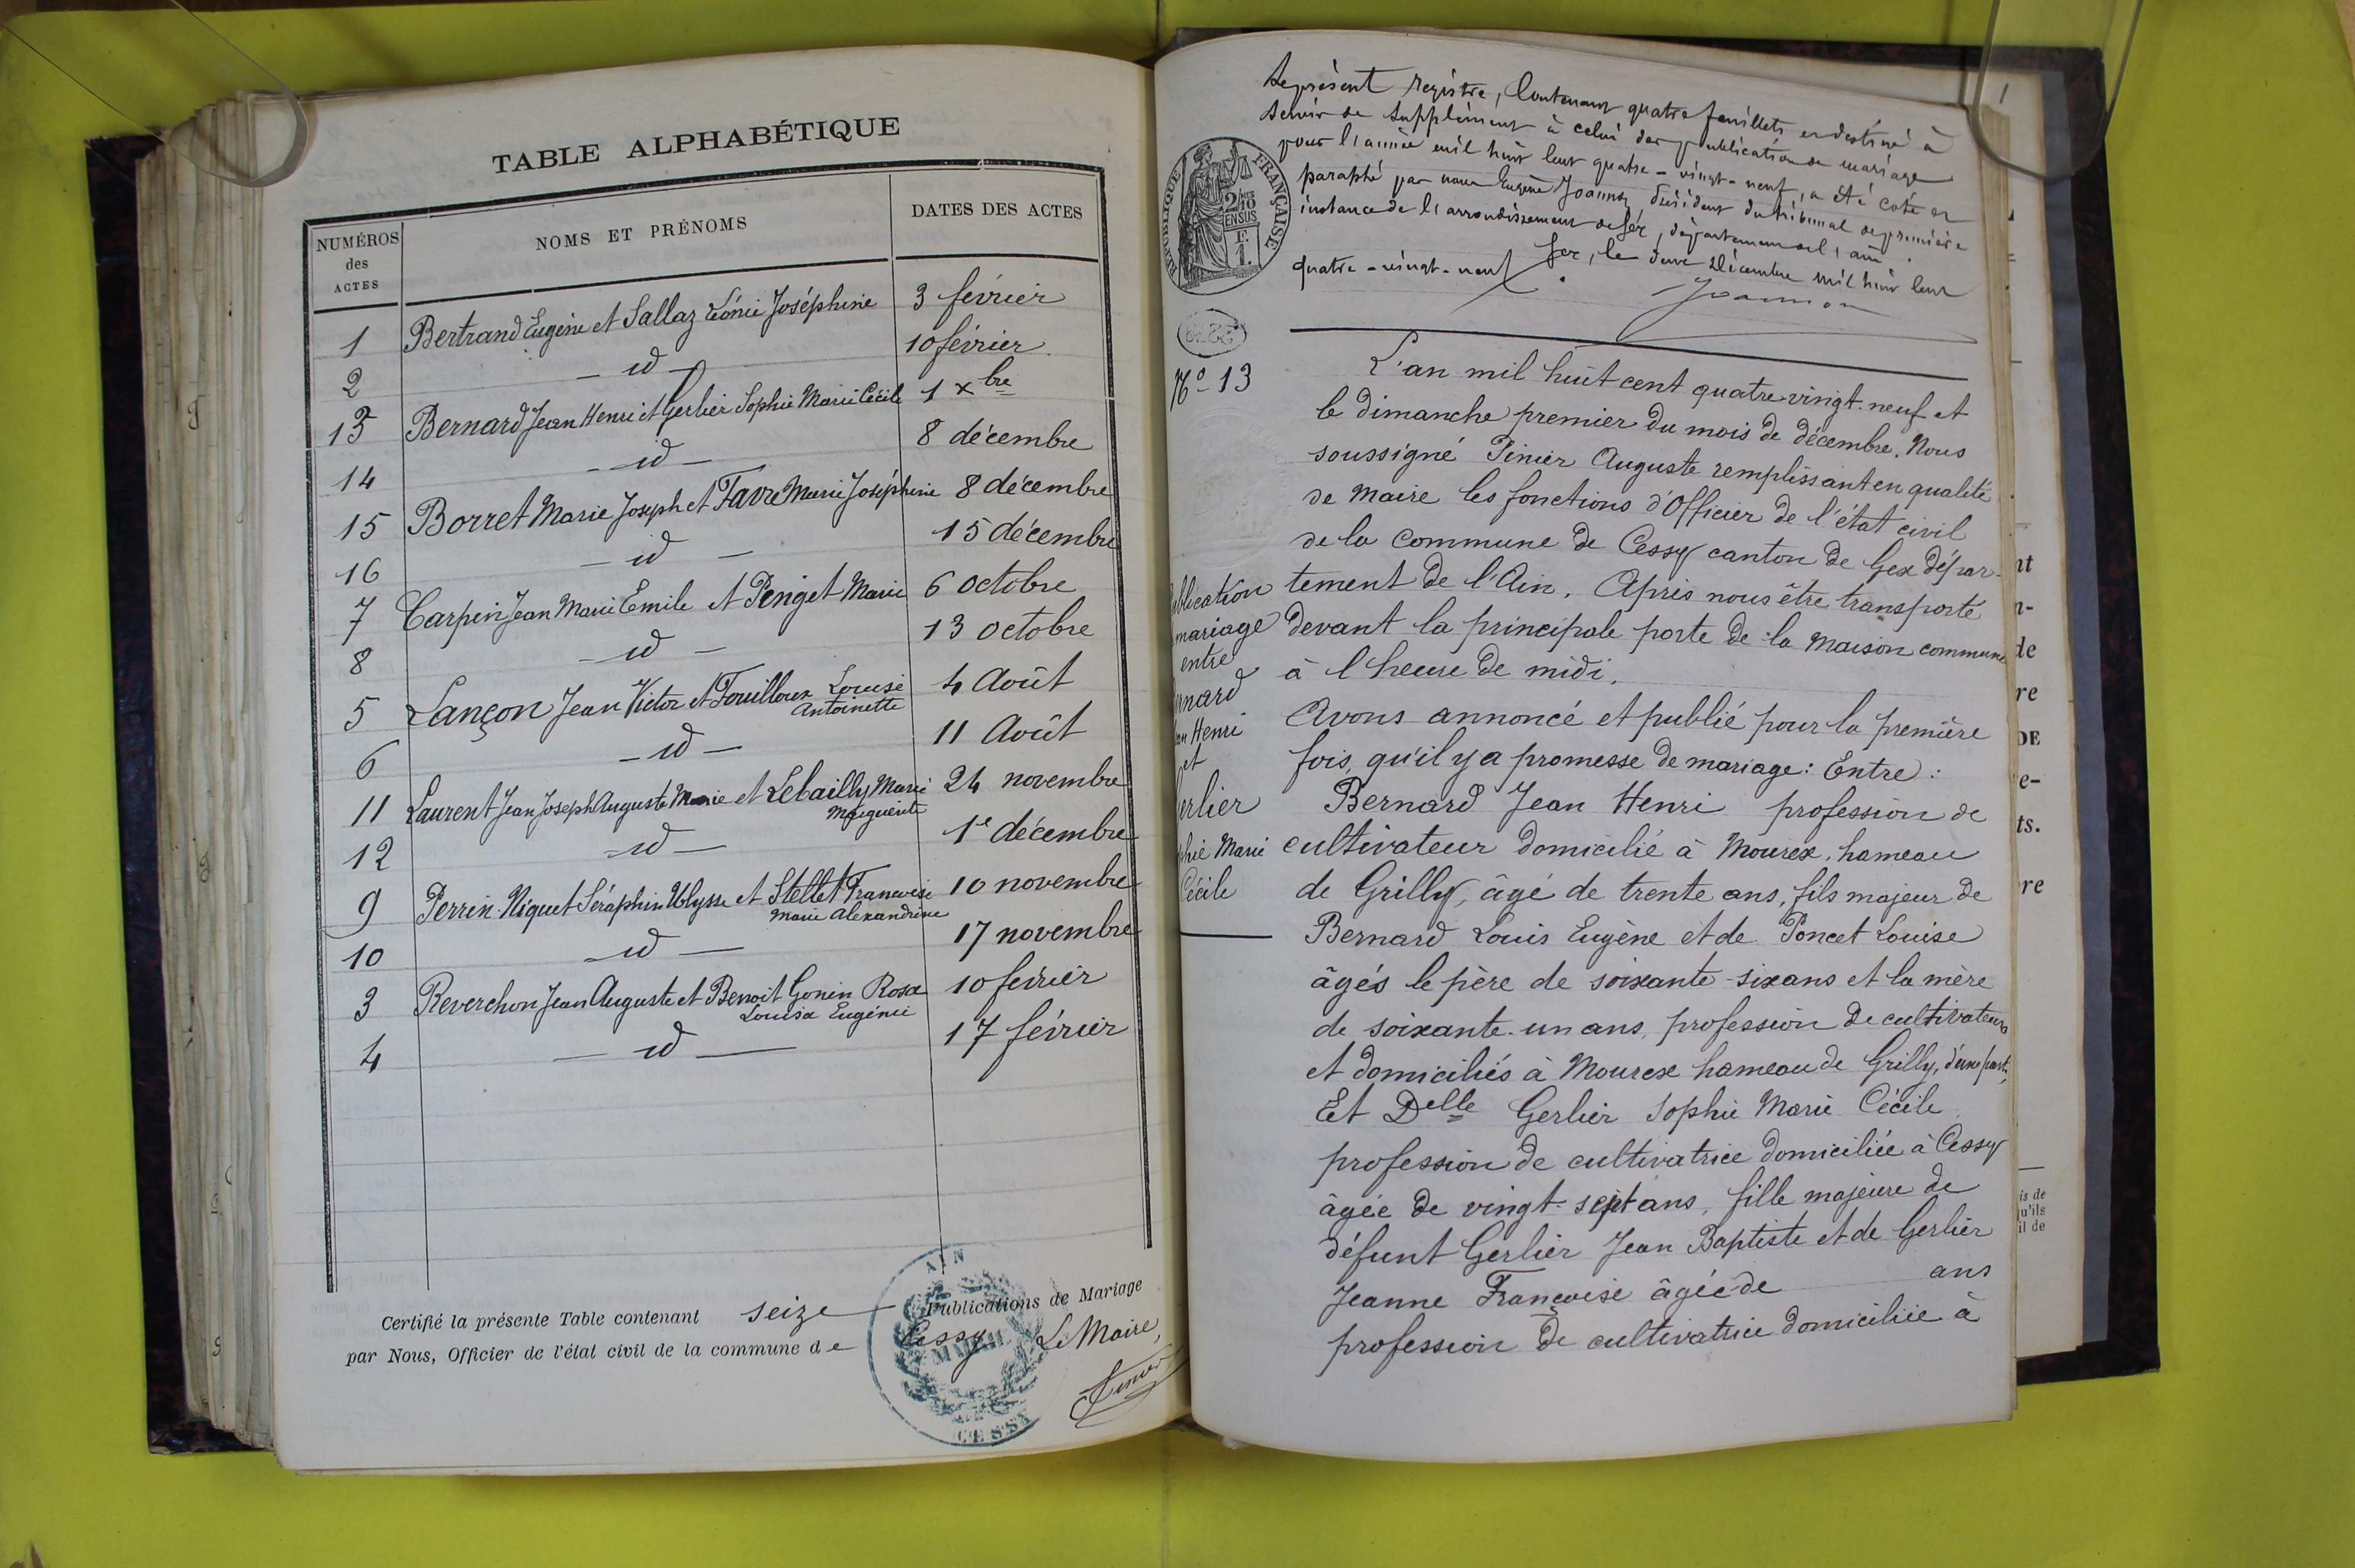 TABLE ALPHABÉTIQUE
NUMÉROS des ACTES
NOMS ET PRÉNOMS
DATES DES ACTES
1 Bertrand Eugène et Sallaz Léonie Joséphine 3 février
2 — id — 10 février
13 Bernard Jean Henri et Gerlier Sophie Marie Cécile 1 xbre
14 — id — 8 décembre
15 Borret Marie Joseph et Favre Marie Joséphine 8 décembre
16 — id — 15 décembre
7 Carpin Jean Marie Emile et Penget Marie 6 octobre
8 — id — 13 octobre
5 Lançon Jean Victor et Fouilloux Louise Antoinette 4 Août
6 — id — 11 Août
11 Laurent Jean Joseph Auguste Marie et Lebailly Marie Marguerite 24 novembre
12 — id — 1e décembre
9 Perrin-Niquet Séraphin Ulysse et Stellet Françoise Marie Alexandrine 10 novembre
10 — id — 17 novembre
3 Reverchon Jean Auguste et Benoit Gonin Rosa Louisa Eugénie 10 février
4 — id — 17 février
Certifié la présente Table contenant seize Publications de Mariage
par Nous, Officier de l'état civil de la commune de Cessy Le Maire,
AIN
MAIRIE
CESSY
1
Le présent registre, contenant quatre feuillets et destiné à
servir de supplément à celui des publications de mariage
pour l'année mil huit cent quatre-vingt-neuf, a été coté et
paraphé par nous Eugène Joannon Président du tribunal de première
instance de l'arrondissement de Gex, département de l'ain.
Gex, le deux Décembre mil huit cent
quatre-vingt-neuf.
Joannon
RÉPUBLIQUE FRANÇAISE
2/10 EN SUS
1 F.
No 13
L'an mil huit cent quatre vingt-neuf et
le dimanche premier du mois de décembre. Nous
soussigné Pinier Auguste remplissant en qualité
de maire les fonctions d'Officier de l'état civil
de la commune de Cessy canton de Gex dépar-
tement de l'Ain. Après nous être transporté
devant la principale porte de la maison commune
à l'heure de midi.
Avons annoncé et publié pour la première
fois, qu'il y a promesse de mariage : Entre :
Bernard Jean Henri profession de
cultivateur domicilié à Mourex, hameau
de Grilly, âgé de trente ans, fils majeur de
Bernard Louis Eugène et de Poncet Louise
âgés le père de soixante-six ans et la mère
de soixante-un ans, profession de cultivateurs
et domiciliés à Mourex hameau de Grilly, d'une part,
Et Delle Gerlier Sophie Marie Cécile
profession de cultivatrice domiciliée à Cessy
âgée de vingt-sept ans, fille majeure de
défunt Gerlier Jean Baptiste et de Gerlier
Jeanne Françoise âgée de ans
profession de cultivatrice domiciliée à
ublication
mariage
entre
rnard
an Henri
et
erlier
phie Marie
Cécile
nt
n-
de
re
DE
e-
ts.
re
is de
u'ils
il de